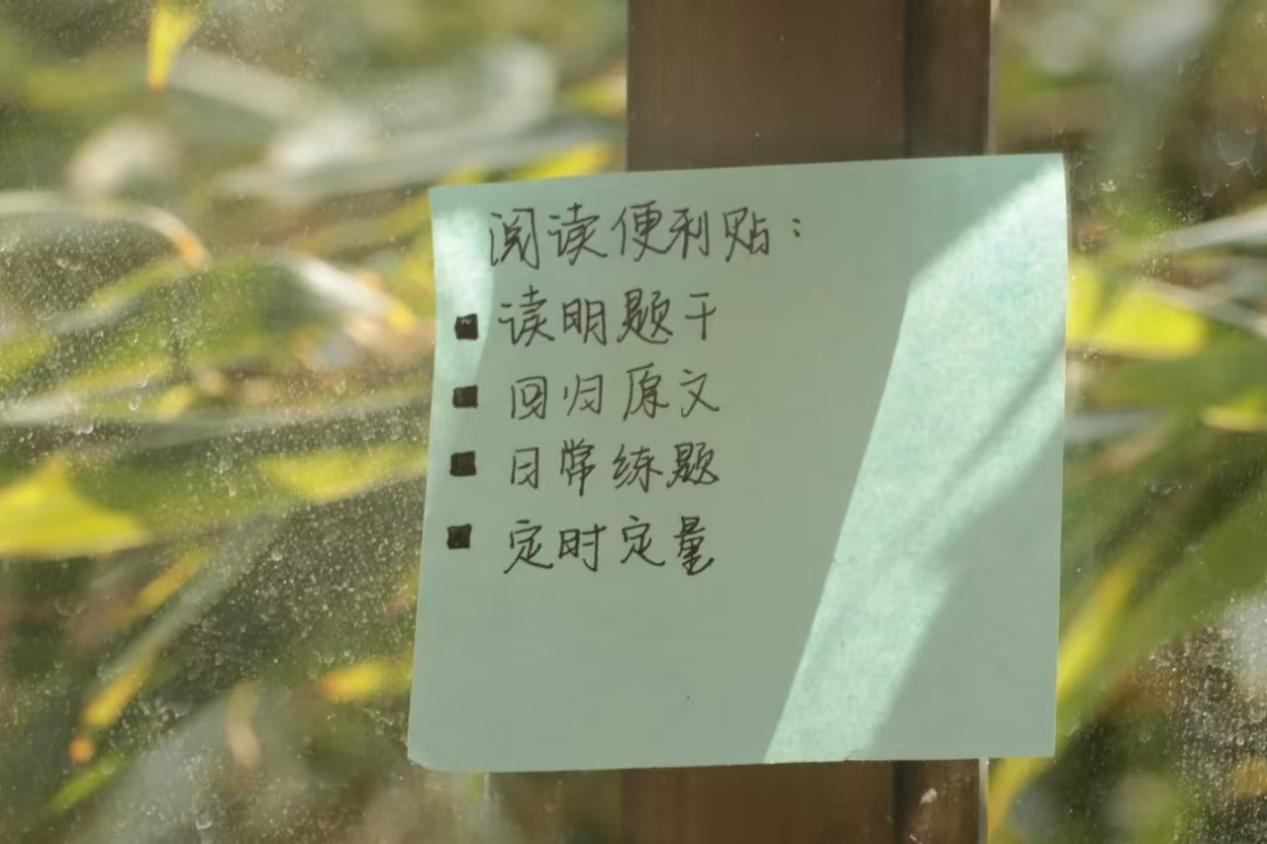 阅读便利贴：
■ 读明题干
■ 回归原文
■ 日常练题
■ 定时定量